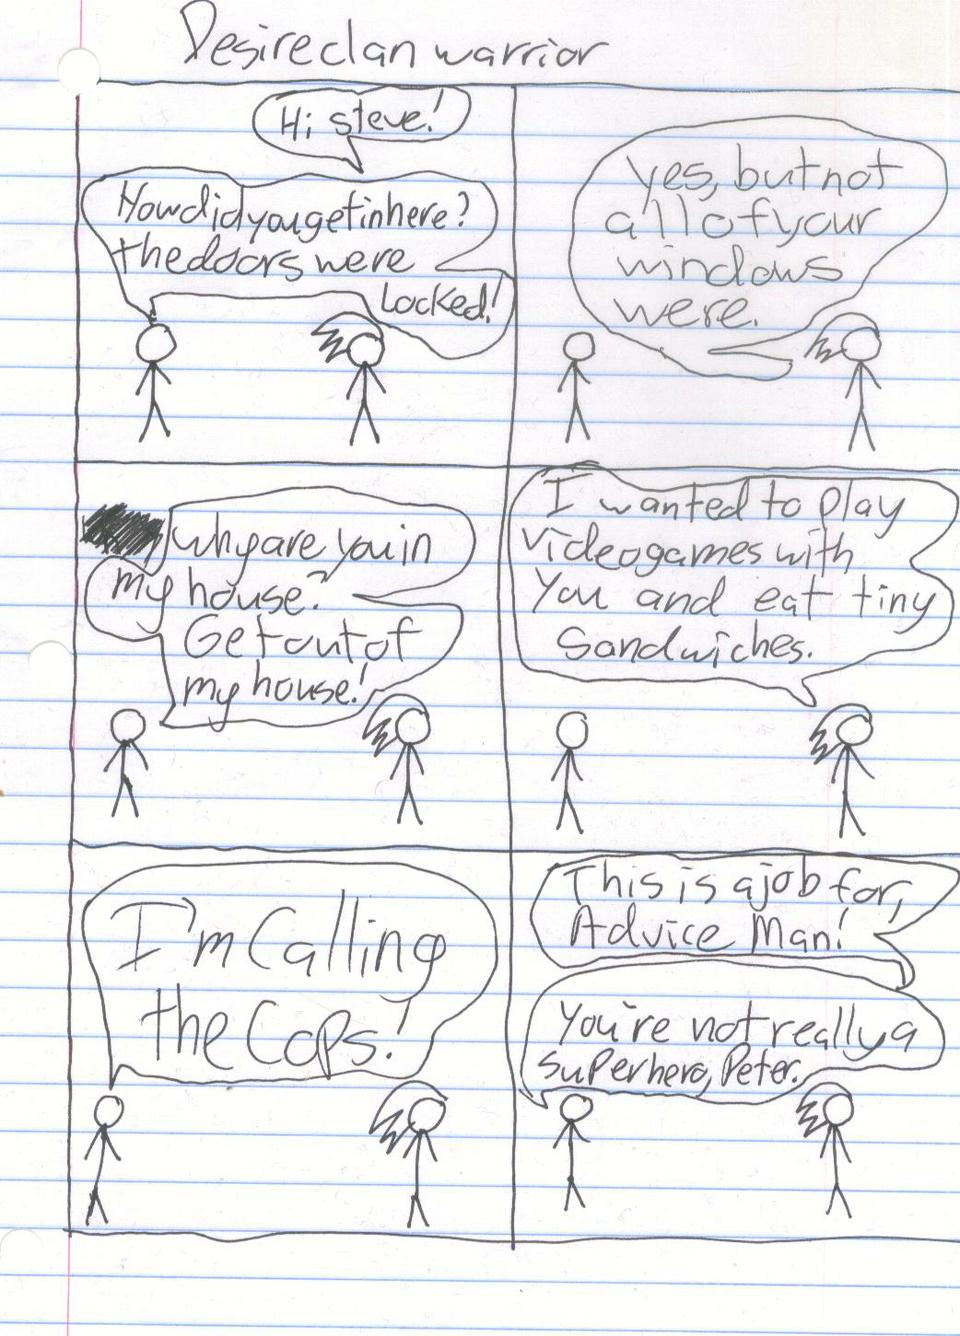 Desireclan warrior
Hi steve!
How did you get in here?
the doors were
Locked!
yes, but not
all of your
windows
were.
why are you in
my house?
Get out of
my house!
I wanted to play
videogames with
you and eat tiny
Sandwiches.
I'm Calling
the Cops!
This is a job for,
Advice Man!
You're not really a
superhero, Peter.